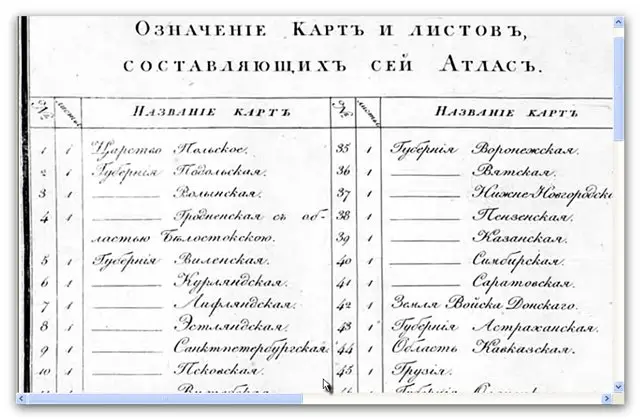 Означеніе Картъ и листовъ,
составляющихъ сей Атласъ.
№ листы Названіе картъ № листы Название карт
1 1 Царство Польское. 35 1 Губернія Воронежская.
2 1 Губернія Подольская. 36 1 ——— Вятская.
3 1 ——— Волынская. 37 1 ——— Нижне-Новгородска
4 1 ——— Гродненская съ об- 38 1 ——— Пензенская.
ластью Бѣлостокскою. 39 1 ——— Казанская.
5 1 Губернія Виленская. 40 1 ——— Симбирская.
6 1 ——— Курляндская. 41 1 ——— Саратовская.
7 1 ——— Лифляндская. 42 1 Земля Войска Донскаго.
8 1 ——— Эстляндская. 43 1 Губернія Астраханская.
9 1 ——— Санктпетербургская. 44 1 Область Кавказская.
10 1 ——— Псковская. 45 1 Грузія.
Губернія